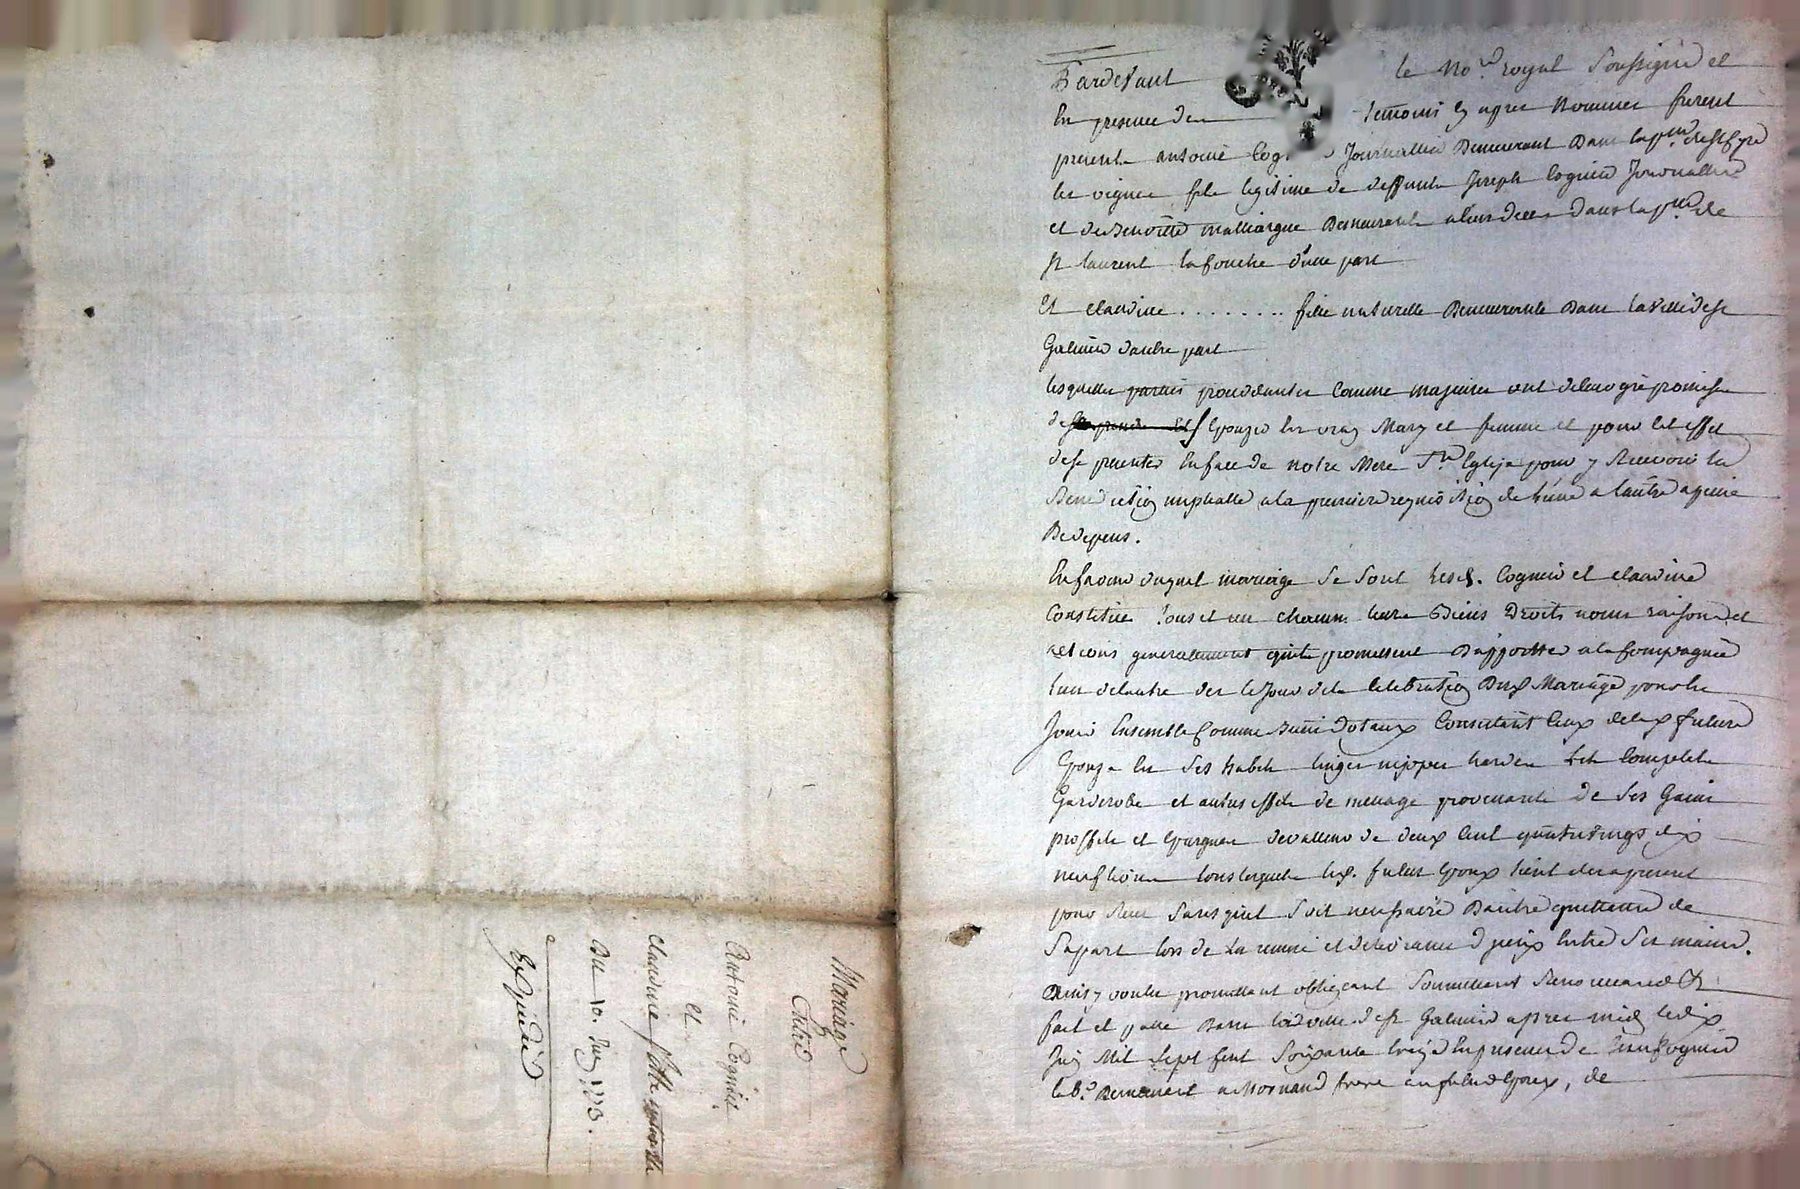 Pardevant le No.re royal Soussigné et
En presence des temoins cy apres Nommes furent
presents antoine Cog Journallier Demeurant Dans la p.sse de st Cyre
les vignes fils legitime de deffunts Joseph Cognier Journallier
et de Benoitte malliargue Demeurants alors dellers dans la p.sse de
st laurent la Conche d'une part
Et claudine ........ fille naturelle Demeurante Dans la ville de st
Galmier dautre part
lesquelles parties procedantes Comme majeures ont de leur gré promis
de Epouzer En vray Mary et femme et pour Cet effet
de se presenter En face de notre Mere S.te Eglize pour y Recevoir la
Benediction nuptialle a la premiere requisition de l'une a l'autre a peine
De depens.
En faveur duquel mariage Se Sont lesd. Cognier et claudine
Constitué tous et un chacuns leurs Biens Droits noms raisons et
actions generalement quils promettent D'apporter a la Compagnie
l'un de lautre des le Jour de la Celebration Dud Mariage pour les
Jouir Ensemble Comme Biens Dotaux Consistant Ceux de lad future
Epouze En Ses habits linges nipes hardes Lit Complet
Garderobe et autres effets de menage provenants de Ses Gains
proffits et Epargnes de valleur de deux Cent quatrevings dix
neuf livres tous lesquels led. futur Epoux tient des a present
pour Reçus Sans quil Soit necessaire D'autre quittance de
Sa part lors de La remise et delivrance d'jceux Entre Ses mains.
Ainsy voulu promettant obligeant Soumettant Renonceant &
fait et passé Dans laditte ville de st Galmier apres midy le dix
Juin Mil Sept Cent Soixante treize En presence de Jean Cognier
Demeurant a Mornand frere du futur Epoux, de
Mariage
Entre
Antoine Cognier
et
claudine fille naturelle
Du 10. Juin 1773.
Expedié